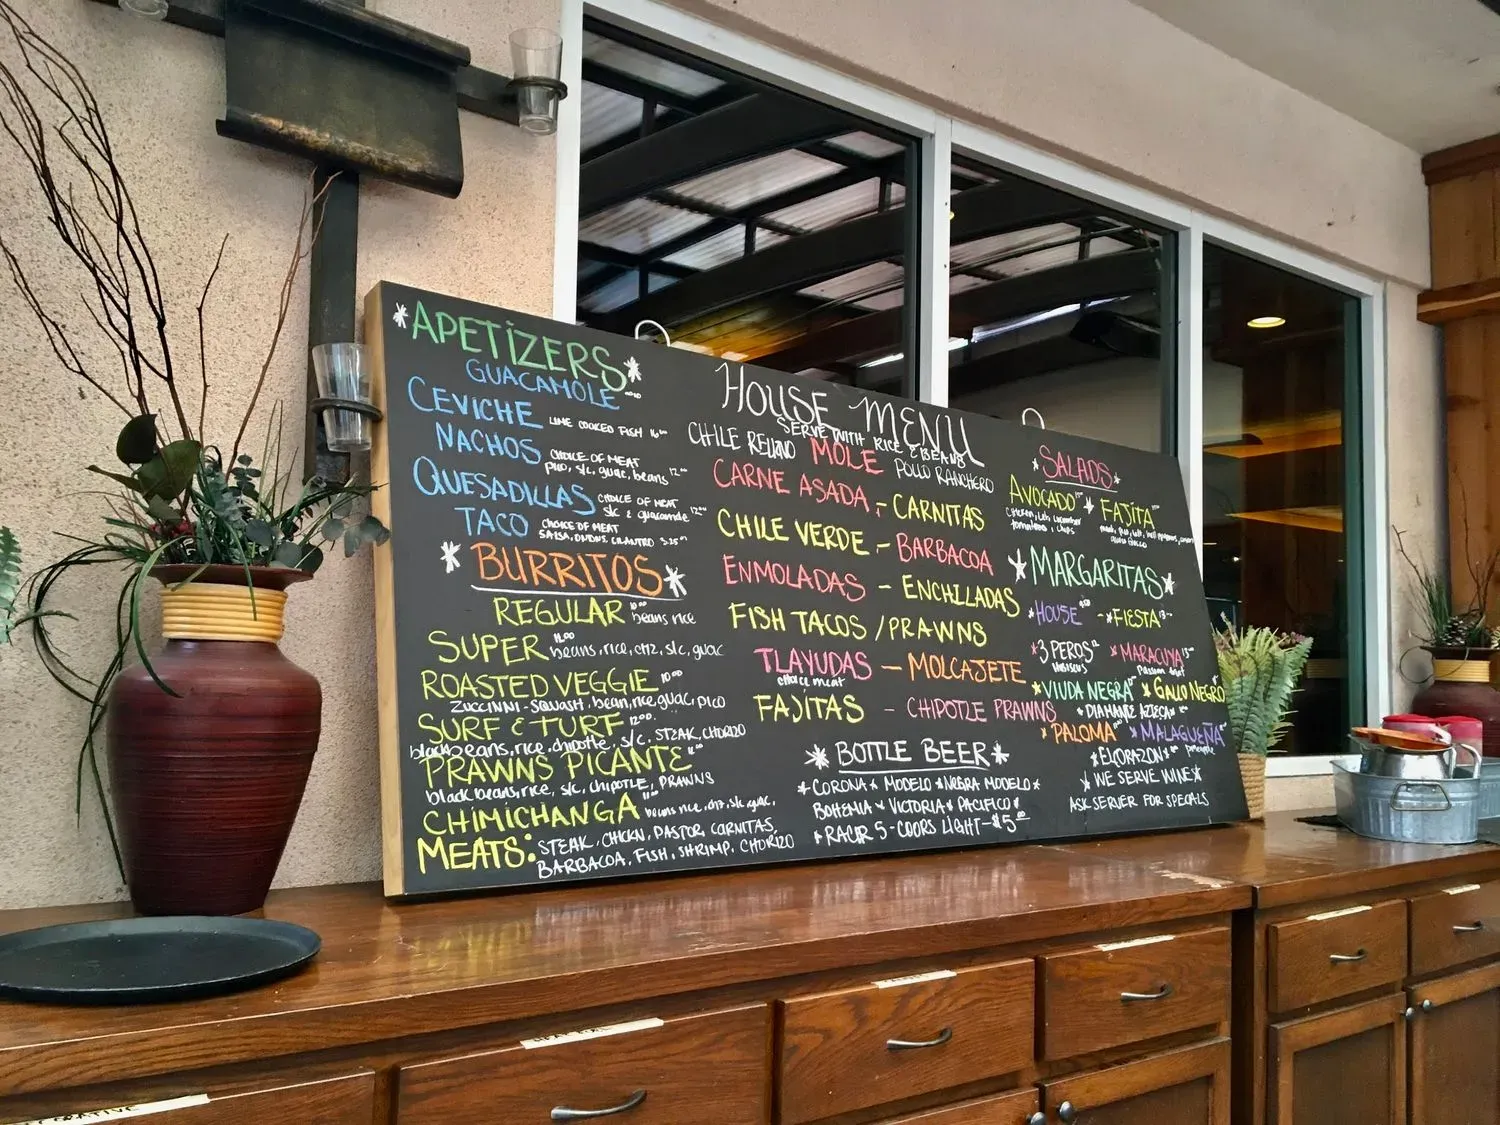 *APETIZERS*
GUACAMOLE
CEVICHE LIME COOKED FISH 16.00
NACHOS CHOICE OF MEAT
pico, s/c, guac, beans 12.00
QUESADILLAS CHOICE OF MEAT
s/c & guacamole 12.00
TACO CHOICE OF MEAT
SALSA, ONIONS, CILANTRO 3.25
*BURRITOS*
REGULAR 10.00 beans rice
SUPER 11.00 beans, rice, chz, s/c, guac
ROASTED VEGGIE 10.00
ZUCCINNI - SQUASH, bean, rice, guac, pico
SURF & TURF 12.00.
black beans, rice, chipotle, s/c, STEAK, CHORIZO
PRAWNS PICANTE
black beans, rice, s/c, chipotle, PRAWNS
CHIMICHANGA beans, rice, chz, s/c, guac,
MEATS: STEAK, CHICKN, PASTOR, CARNITAS,
BARBACOA, FISH, SHRIMP, CHORIZO
HOUSE MENU
SERVE WITH RICE & BEANS
CHILE RELLNO MOLE POLLO RANCHERO
CARNE ASADA - CARNITAS
CHILE VERDE - BARBACOA
ENMOLADAS - ENCHILADAS
FISH TACOS / PRAWNS
TLAYUDAS - MOLCAJETE
choice meat
FAJITAS - CHIPOTLE PRAWNS
*BOTTLE BEER*
*CORONA* MODELO *NEGRA MODELO*
BOHEMIA * VICTORIA * PACIFICO *
* RACER 5 - COORS LIGHT - $5.00
*SALADS*
AVOCADO * FAJITA
*MARGARITAS*
*HOUSE - *FIESTA 13
*3 PEROS *MARACUYA 13
Hibiscus Passion fruit
*VIUDA NEGRA *GALLO NEGRO
*DIAMANTE AZTECA
*PALOMA *MALAGUEÑA
pineapple
*EL CORAZON
*WE SERVE WINE*
ASK SERVER FOR SPECIALS